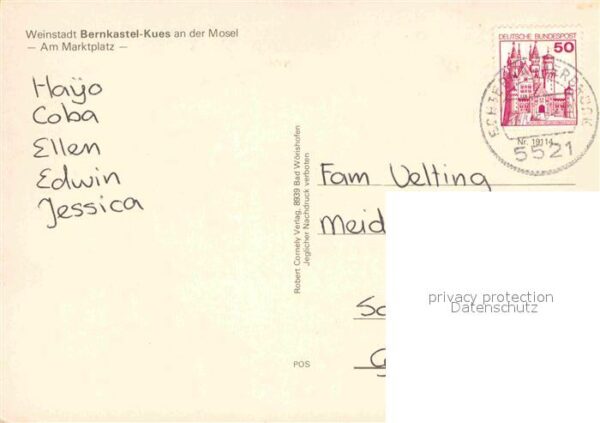 Weinstadt Bernkastel-Kues an der Mosel
— Am Marktplatz —
Hayo
Coba
Ellen
Edwin
Jessica
DEUTSCHE BUNDESPOST
50
Nr. 19114
5521
Robert Cornely Verlag, 8939 Bad Wörishofen
Jeglicher Nachdruck verboten
Fam Velting
Meid
privacy protection
Datenschutz
POS